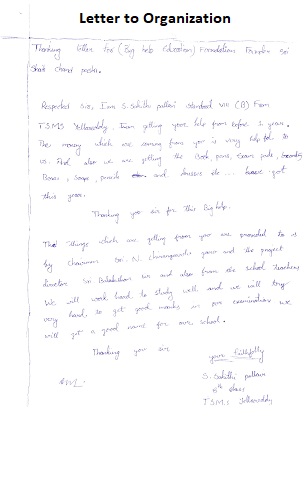 Letter to Organization
Thanking letter for (Big help Education) Foundation Founder Sri
Shaik Chand pasha.
Respected Sir, I am S. Sahithi pallavi standard VIII (B) from
TSMS Yellareddy, I am getting your help from before 2 years.
This money which we coming from you is very helpful to
us. And also we are getting the Book, pens, Exam pads,
Boxes, Soaps, pencils and brushes etc... have got
this year.
Thanking you sir for this Big help.
That things which are getting from you are provided to us
by chairman Sri. N. garu and the project
director Sri. Balakishan and also from the school teachers
We will work hard to study well and we will try
very hard, to get good marks in our examination we
will get a good name for our school.
Thanking you sir
yours faithfully
S. Sahithi pallavi
8th class
T.S.M.S Yellareddy